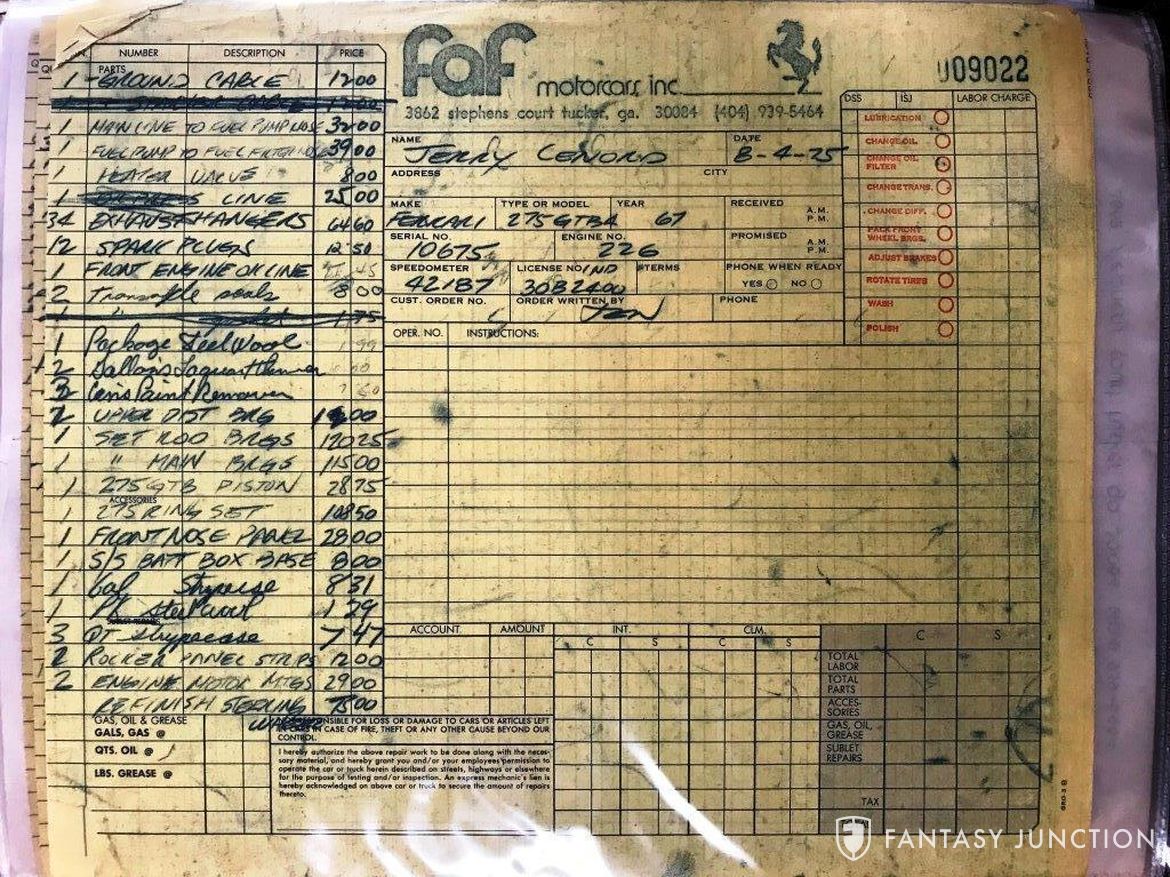 NUMBER DESCRIPTION PRICE
PARTS
1 GROUND CABLE 12 00
1 MAIN LINE TO FUEL PUMP HOSE 32 00
1 FUEL PUMP TO FUEL FILTER HOSE 39 00
1 HEATER VALVE 8 00
1 LINE 25 00
34 EXHAUST HANGERS 64 60
12 SPARK PLUGS 12 50
1 FRONT ENGINE OIL LINE 45
2 Transaxle seals 8 00
1 " 1 75
1 Package Steel Wool 99
2 Gallons
3 Cans Paint Remover
2 UPPER DIST BRG 00
1 SET ROD BRGS 120 25
1 " MAIN BRGS 115 00
1 275 GTB PISTON 28 75
ACCESSORIES
1 275 RING SET 108 50
1 FRONT NOSE PANEL 28 00
1 S/S BATT BOX BASE 8 00
1 Gal 8 31
1 PK steel wool 1 29
SUBLET REPAIRS
3 QT 7 47
2 ROCKER PANEL STRIPS 12 00
2 ENGINE MOTOR MTGS 29 00
REFINISH STEERING 75 00
GAS, OIL & GREASE
GALS, GAS @
QTS. OIL @
LBS. GREASE @
faf motorcars inc.
3862 stephens court tucker, ga. 30084 (404) 939-5464
009022
NAME JERRY DATE 8-4-75
ADDRESS CITY
MAKE FERRARI TYPE OR MODEL 275 GTB4 YEAR 67 RECEIVED A.M. P.M.
SERIAL NO. 10675 ENGINE NO. 226 PROMISED A.M. P.M.
SPEEDOMETER 42187 LICENSE NO. IND 30B2400 TERMS PHONE WHEN READY YES NO
CUST. ORDER NO. ORDER WRITTEN BY PHONE
OPER. NO. INSTRUCTIONS:
DSS ISJ LABOR CHARGE
LUBRICATION
CHANGE OIL
CHANGE OIL FILTER
CHANGE TRANS.
CHANGE DIFF.
PACK FRONT WHEEL BRGS.
ADJUST BRAKES
ROTATE TIRES
WASH
POLISH
ACCOUNT AMOUNT INT. CLM. C S
C S C S
TOTAL LABOR
TOTAL PARTS
ACCESSORIES
GAS, OIL, GREASE
SUBLET REPAIRS
TAX
RESPONSIBLE FOR LOSS OR DAMAGE TO CARS OR ARTICLES LEFT
IN CARS IN CASE OF FIRE, THEFT OR ANY OTHER CAUSE BEYOND OUR
CONTROL.
I hereby authorize the above repair work to be done along with the neces-
sary material, and hereby grant you and/or your employees permission to
operate the car or truck herein described on streets, highways or elsewhere
for the purpose of testing and/or inspection. An express mechanic's lien is
hereby acknowledged on above car or truck to secure the amount of repairs
thereto.
GRO-3 B
FANTASY JUNCTION